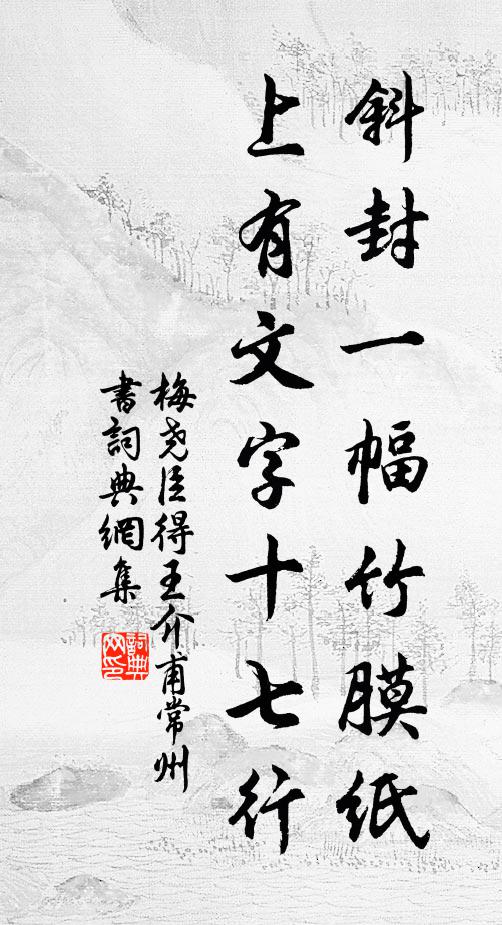 斜封一幅竹膜纸
上有文字十七行
梅尧臣得王介甫常州
書詞典網集
詞典网印